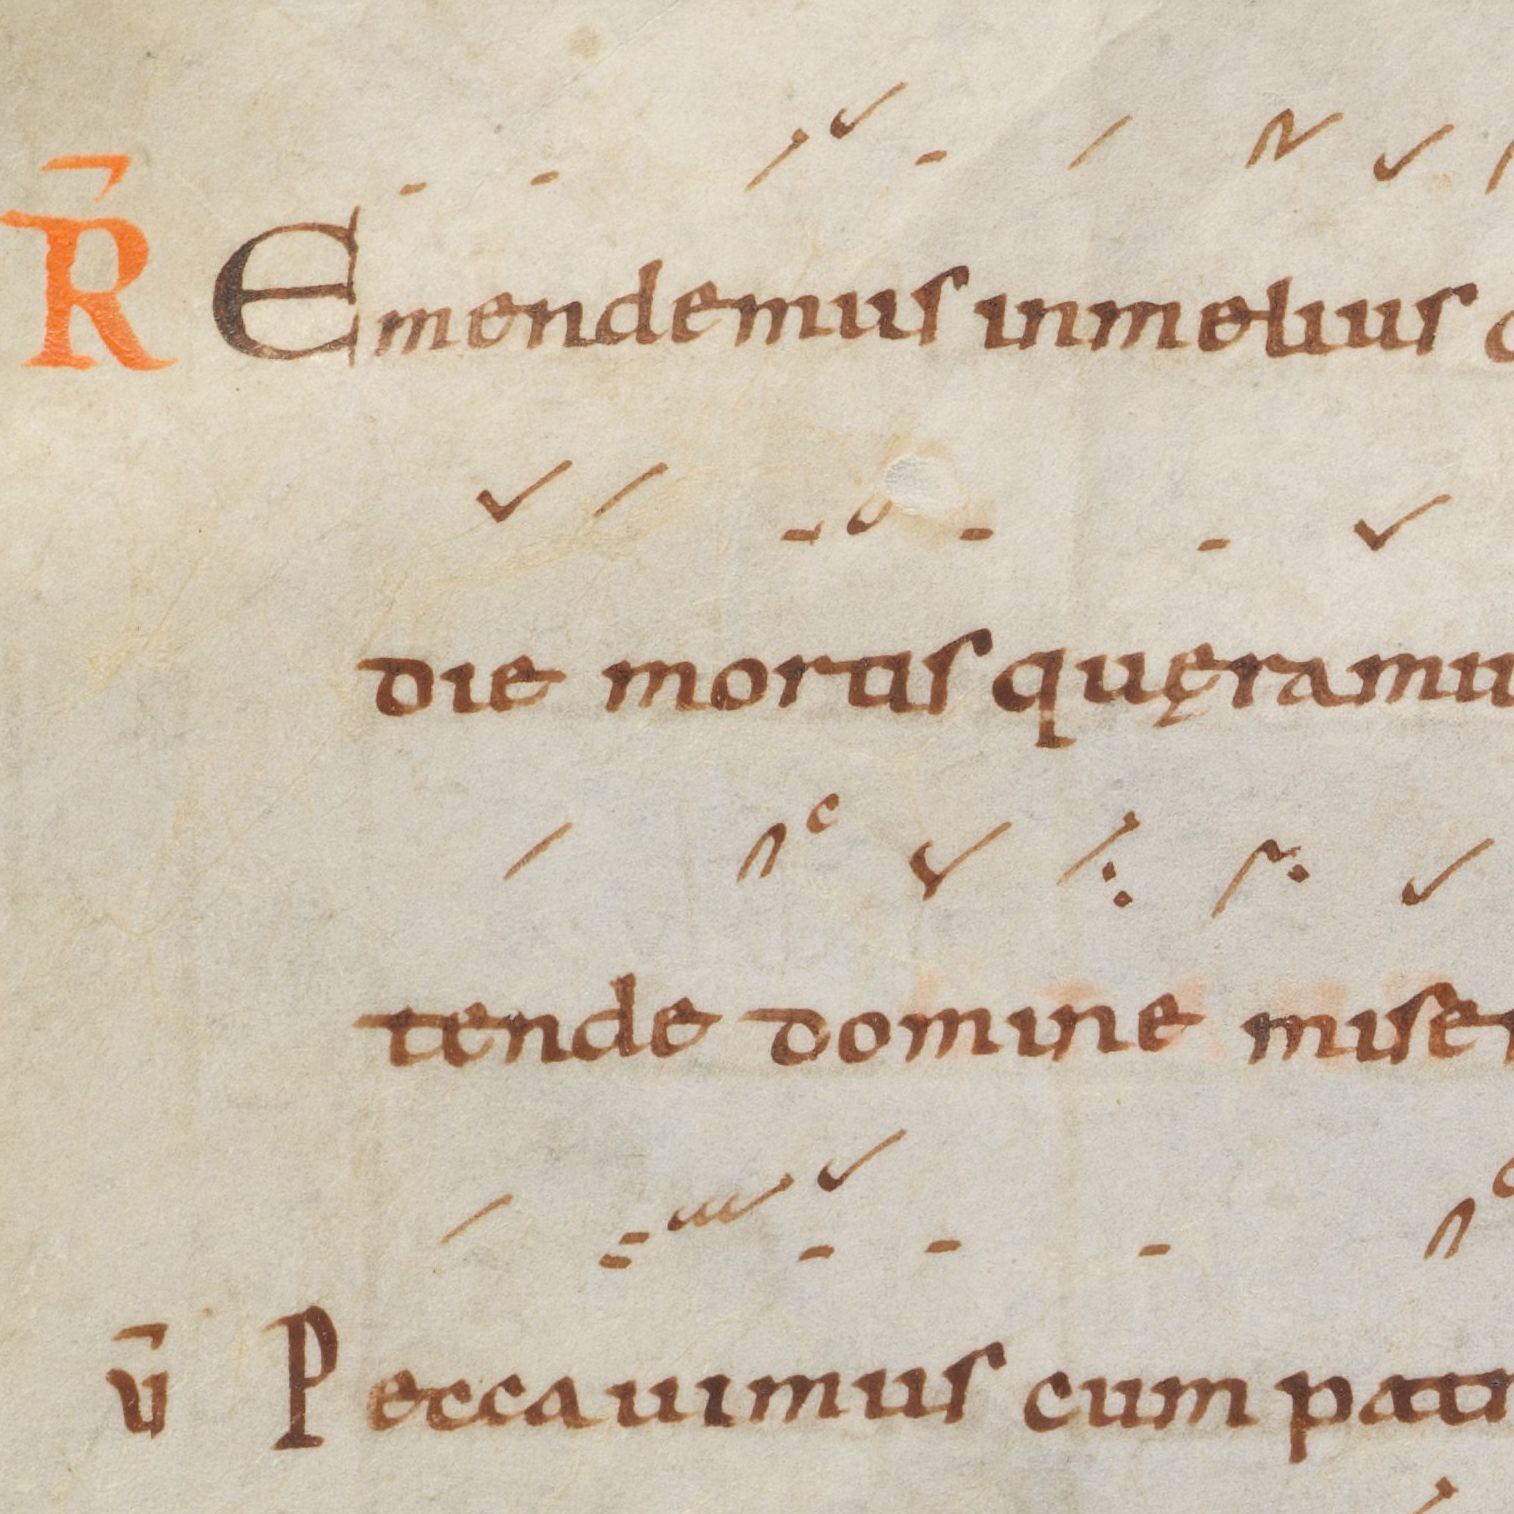 R̄ Emendemus inmelius
die mortis quęramu
tende domine miser
v̄ Peccauimus cum patr